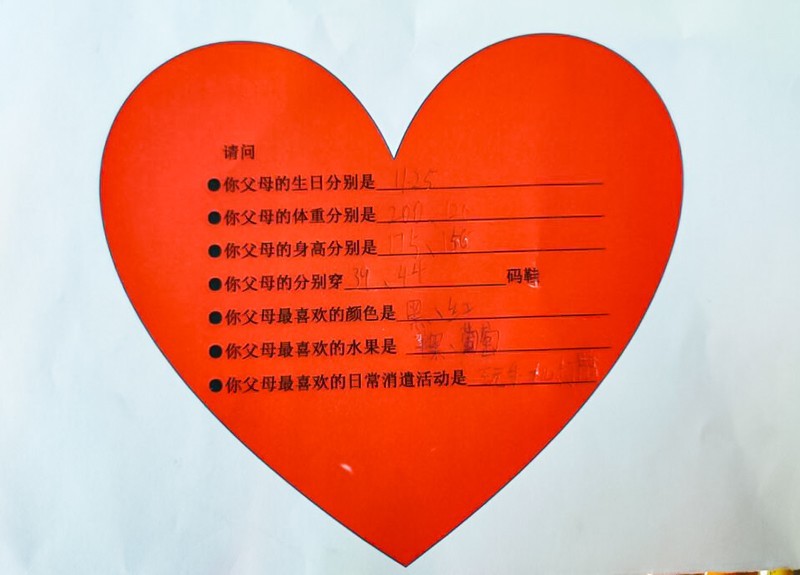 请问
●你父母的生日分别是 1125
●你父母的体重分别是 200、
●你父母的身高分别是 175、156
●你父母的分别穿 39、44 码鞋
●你父母最喜欢的颜色是 黑、红
●你父母最喜欢的水果是
●你父母最喜欢的日常消遣活动是 玩手机